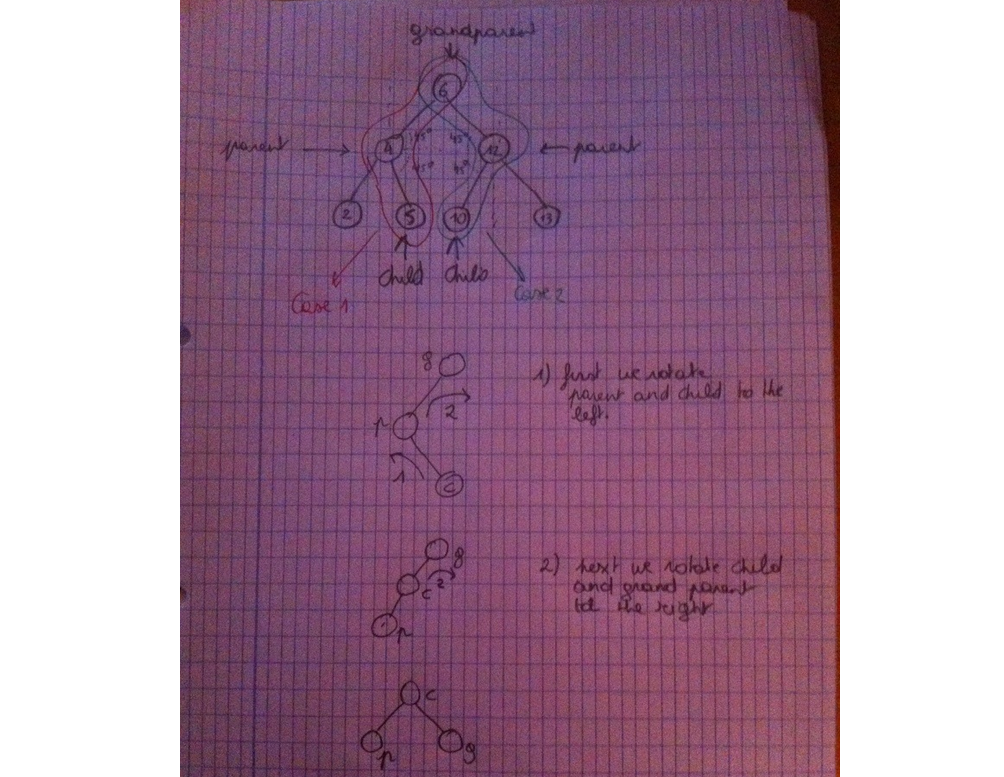 grandparent
6
parent
4
45°
45°
12
parent
45°
45°
2
5
10
13
child
child
Case 1
Case 2
g
p
2
1
c
1) first we rotate
parent and child to the
left.
g
c
2
p
2) next we rotate child
and grand parent
to the right
c
p
g